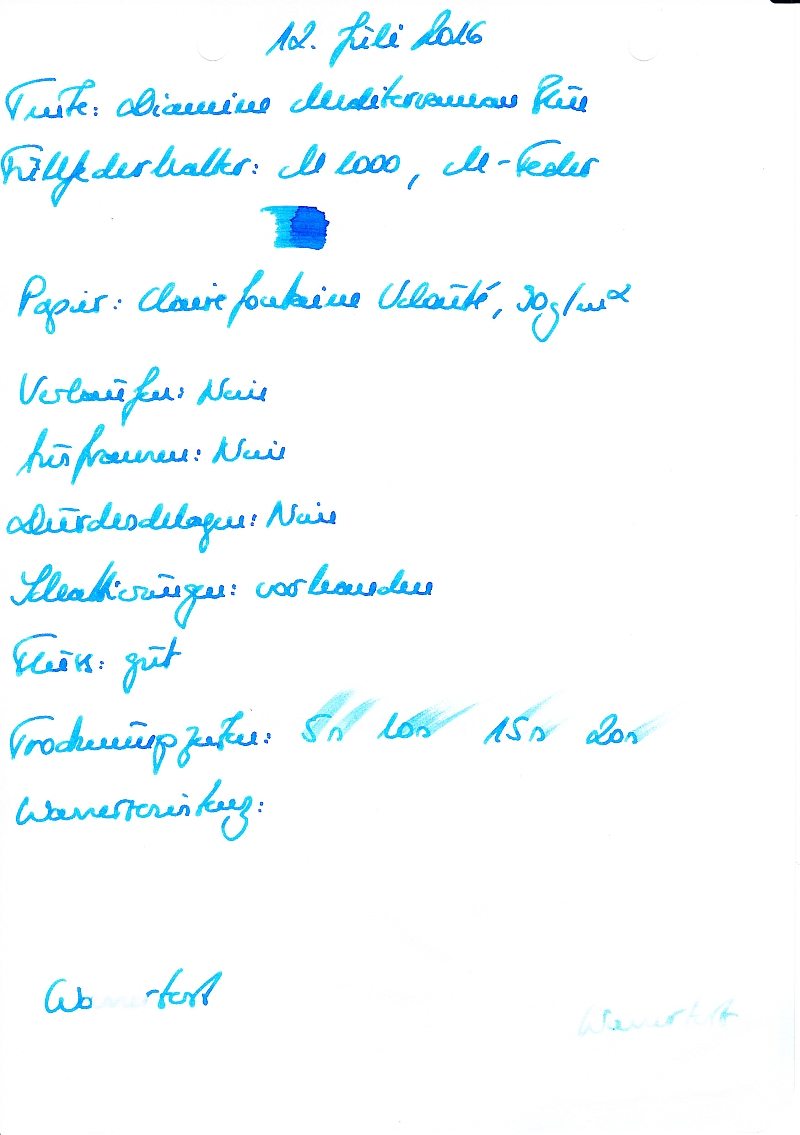 12. Juli 2016
Tinte: Diamine Mediterranean Blue
Füllfederhalter: M1000, M-Feder
Papier: Clairefontaine Velouté, 90g/m²
Verlaufen: Nein
Ausfransen: Nein
Durchschlagen: Nein
Schattierungen: vorhanden
Fluss: gut
Trocknungszeiten: 5s 10s 15s 20s
Wasserresistenz:
Wassertest
Wassertest